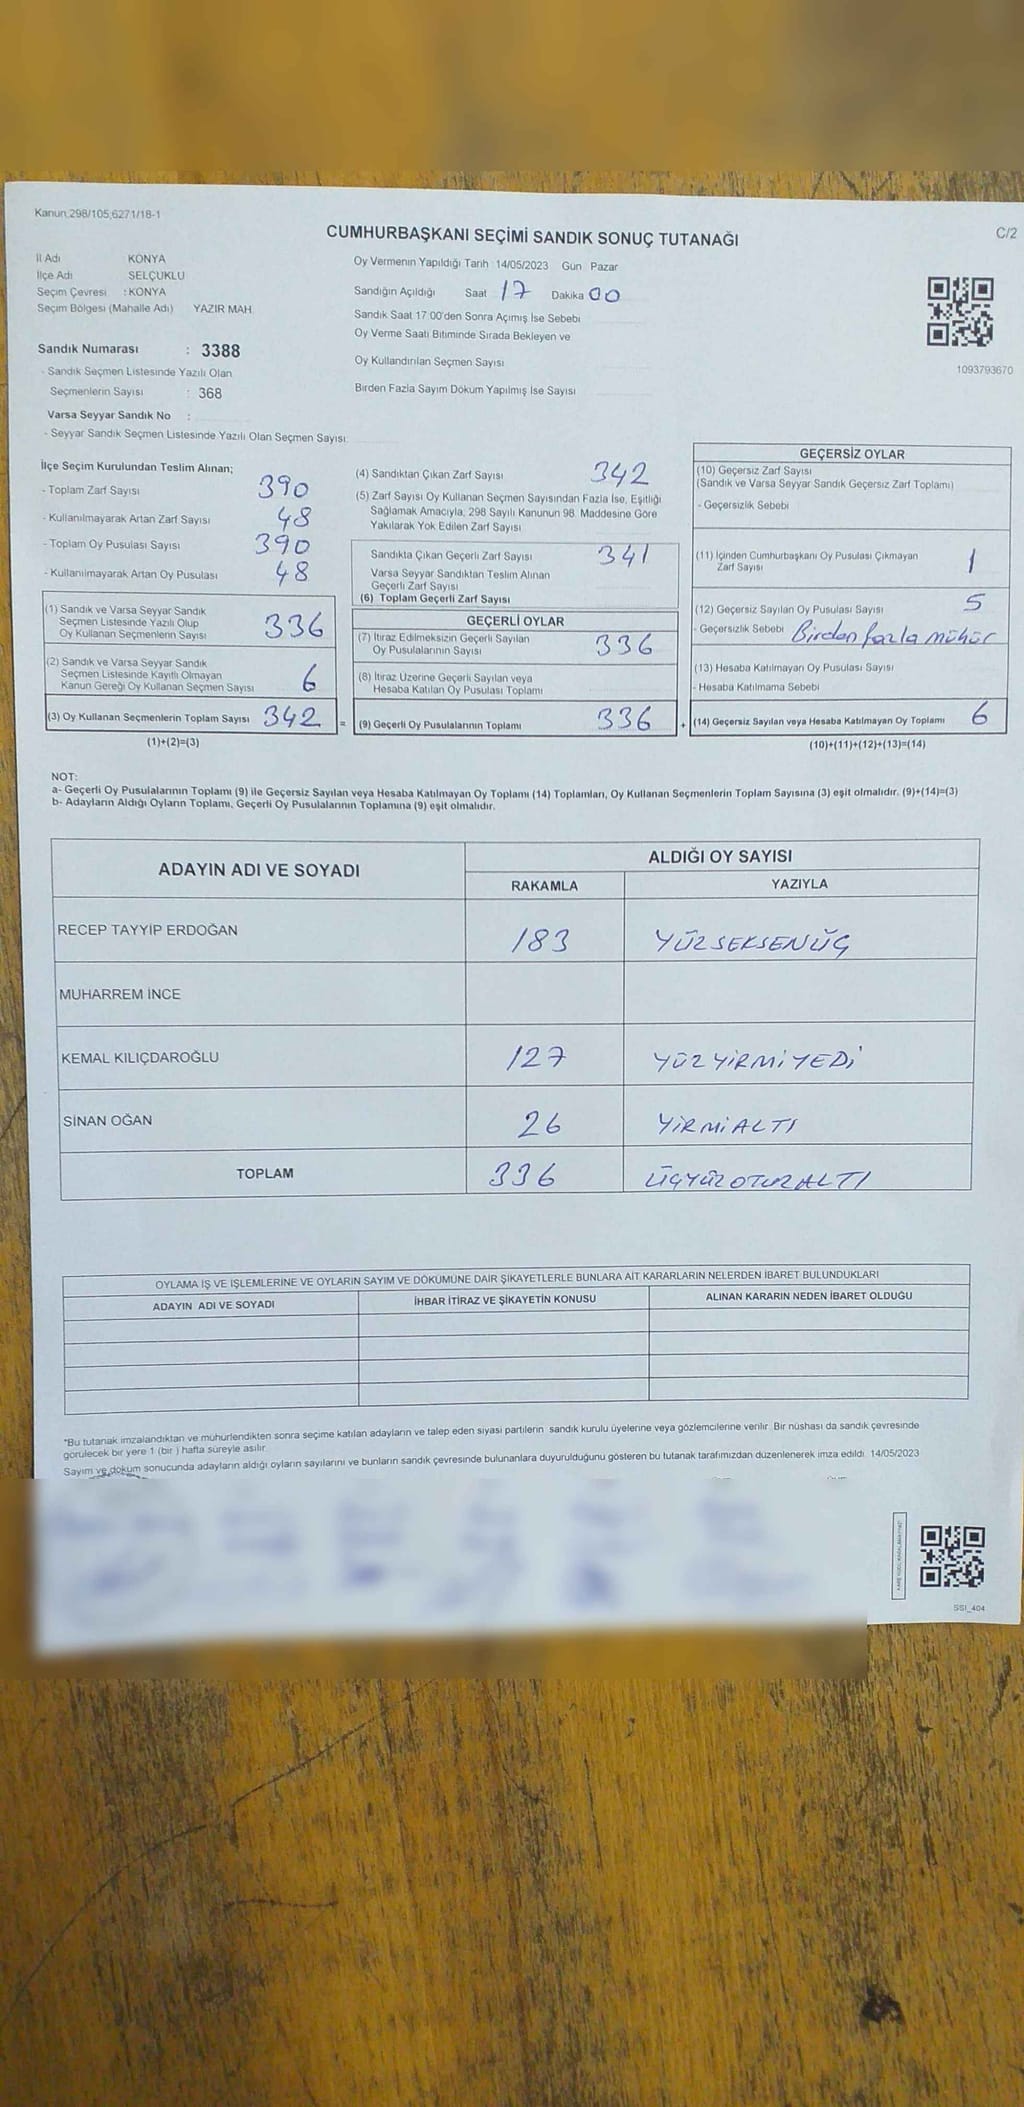 Kanun.298/105,6271/18-1
CUMHURBAŞKANI SEÇİMİ SANDIK SONUÇ TUTANAĞI
C/2
İl Adı KONYA
İlçe Adı SELÇUKLU
Seçim Çevresi : KONYA
Seçim Bölgesi (Mahalle Adı) YAZIR MAH.
Sandık Numarası : 3388
- Sandık Seçmen Listesinde Yazılı Olan
Seçmenlerin Sayısı : 368
Varsa Seyyar Sandık No :
- Seyyar Sandık Seçmen Listesinde Yazılı Olan Seçmen Sayısı:
Oy Vermenin Yapıldığı Tarih 14/05/2023 Gün Pazar
Sandığın Açıldığı Saat 17 Dakika 00
Sandık Saat 17:00'den Sonra Açılmış İse Sebebi
Oy Verme Saati Bitiminde Sırada Bekleyen ve
Oy Kullandırılan Seçmen Sayısı
Birden Fazla Sayım Döküm Yapılmış İse Sayısı
1093793670
İlçe Seçim Kurulundan Teslim Alınan;
- Toplam Zarf Sayısı 390
- Kullanılmayarak Artan Zarf Sayısı 48
- Toplam Oy Pusulası Sayısı 390
- Kullanılmayarak Artan Oy Pusulası 48
(1) Sandık ve Varsa Seyyar Sandık
Seçmen Listesinde Yazılı Olup
Oy Kullanan Seçmenlerin Sayısı 336
(2) Sandık ve Varsa Seyyar Sandık
Seçmen Listesinde Kayıtlı Olmayan
Kanun Gereği Oy Kullanan Seçmen Sayısı 6
(3) Oy Kullanan Seçmenlerin Toplam Sayısı 342 =
(1)+(2)=(3)
(4) Sandıktan Çıkan Zarf Sayısı 342
(5) Zarf Sayısı Oy Kullanan Seçmen Sayısından Fazla İse, Eşitliği
Sağlamak Amacıyla, 298 Sayılı Kanunun 98. Maddesine Göre
Yakılarak Yok Edilen Zarf Sayısı
Sandıkta Çıkan Geçerli Zarf Sayısı 341
Varsa Seyyar Sandıktan Teslim Alınan
Geçerli Zarf Sayısı
(6) Toplam Geçerli Zarf Sayısı
GEÇERLİ OYLAR
(7) İtiraz Edilmeksizin Geçerli Sayılan
Oy Pusulalarının Sayısı 336
(8) İtiraz Üzerine Geçerli Sayılan veya
Hesaba Katılan Oy Pusulası Toplamı
(9) Geçerli Oy Pusulalarının Toplamı 336 +
GEÇERSİZ OYLAR
(10) Geçersiz Zarf Sayısı
(Sandık ve Varsa Seyyar Sandık Geçersiz Zarf Toplamı)
- Geçersizlik Sebebi
(11) İçinden Cumhurbaşkanı Oy Pusulası Çıkmayan
Zarf Sayısı 1
(12) Geçersiz Sayılan Oy Pusulası Sayısı 5
- Geçersizlik Sebebi Birden fazla mühür
(13) Hesaba Katılmayan Oy Pusulası Sayısı
- Hesaba Katılmama Sebebi
(14) Geçersiz Sayılan veya Hesaba Katılmayan Oy Toplamı 6
(10)+(11)+(12)+(13)=(14)
NOT:
a- Geçerli Oy Pusulalarının Toplamı (9) ile Geçersiz Sayılan veya Hesaba Katılmayan Oy Toplamı (14) Toplamları, Oy Kullanan Seçmenlerin Toplam Sayısına (3) eşit olmalıdır. (9)+(14)=(3)
b- Adayların Aldığı Oyların Toplamı, Geçerli Oy Pusulalarının Toplamına (9) eşit olmalıdır.
ADAYIN ADI VE SOYADI ALDIĞI OY SAYISI
RAKAMLA YAZIYLA
RECEP TAYYİP ERDOĞAN 183 YÜZSEKSENÜÇ
MUHARREM İNCE
KEMAL KILIÇDAROĞLU 127 YÜZYİRMİYEDİ
SİNAN OĞAN 26 YİRMİALTI
TOPLAM 336 ÜÇYÜZOTUZALTI
OYLAMA İŞ VE İŞLEMLERİNE VE OYLARIN SAYIM VE DÖKÜMÜNE DAİR ŞİKAYETLERLE BUNLARA AİT KARARLARIN NELERDEN İBARET BULUNDUKLARI
ADAYIN ADI VE SOYADI İHBAR İTİRAZ VE ŞİKAYETİN KONUSU ALINAN KARARIN NEDEN İBARET OLDUĞU
*Bu tutanak imzalandıktan ve mühürlendikten sonra seçime katılan adayların ve talep eden siyasi partilerin sandık kurulu üyelerine veya gözlemcilerine verilir. Bir nüshası da sandık çevresinde
görülecek bir yere 1 (bir ) hafta süreyle asılır.
Sayım ve döküm sonucunda adayların aldığı oyların sayılarını ve bunların sandık çevresinde bulunanlara duyurulduğunu gösteren bu tutanak tarafımızdan düzenlenerek imza edildi. 14/05/2023
SSI_404